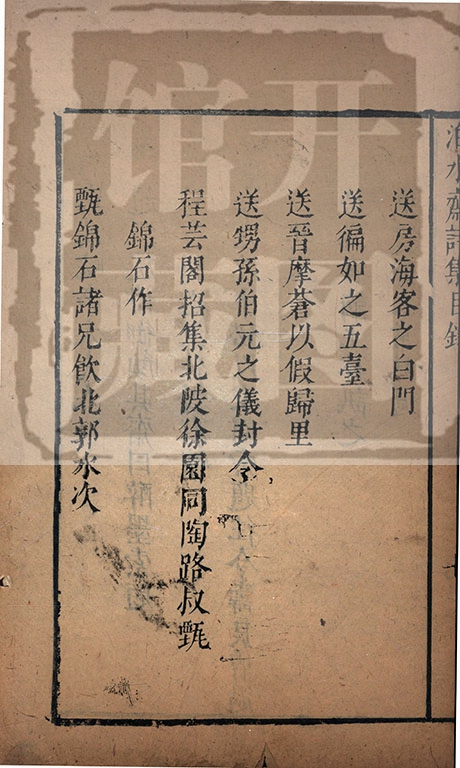 水齋詩集目錄
送房海客之白門
送徧如之五臺
送晉摩蒼以假歸里
送甥孫伯元之儀封令
程芸閣招集北陂徐園同陶路叔甄
錦石作
甄錦石諸兄飲北郭水次
开图
馆藏